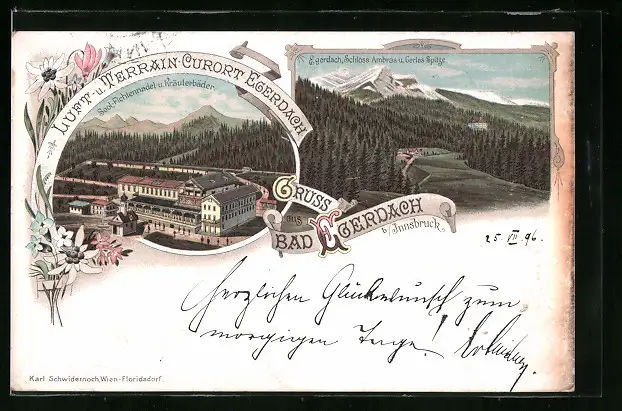 LUFT- u. TERRAIN-CURORT EGERDACH
Sool-, Fichtennadel u. Kräuterbäder.
Egerdach, Schloss Ambras u. Gerlos Spitze
GRUSS
aus
BAD EGERDACH
b/Innsbruck.
25. VII 96.
Herzlichen Glückwunsch zum
morgigen Tage!
Karl Schwidernoch, Wien-Floridsdorf.